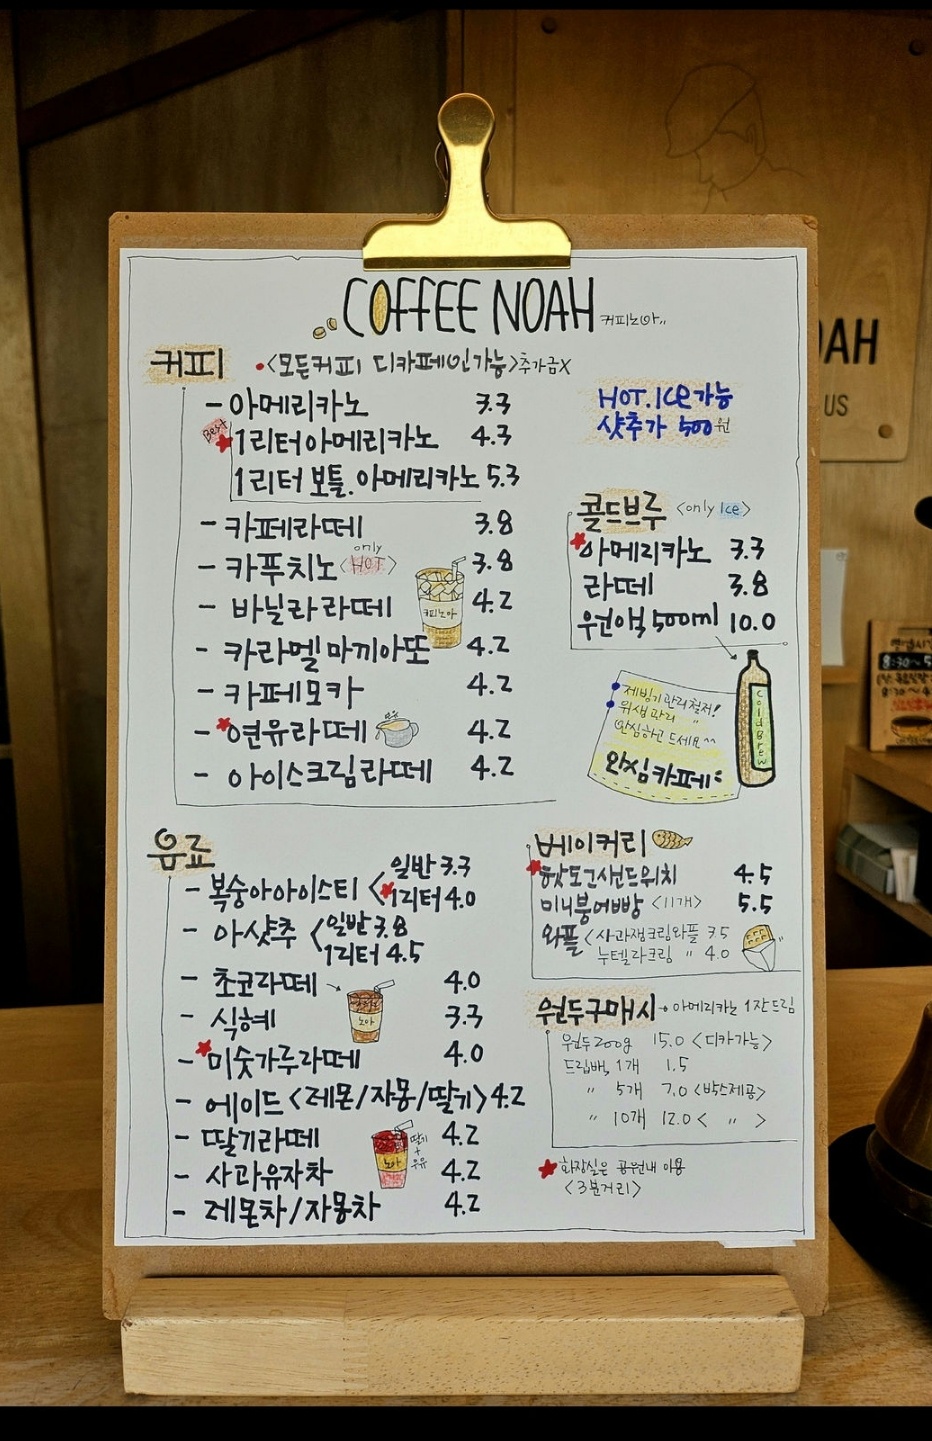 COFFEE NOAH 커피노아..
커피 <모든커피 디카페인가능>추가금X
HOT.ICE가능
샷추가 500원
- 아메리카노 3.3
Best
1리터아메리카노 4.3
1리터 보틀.아메리카노 5.3
- 카페라떼 3.8
- 카푸치노 <only HOT> 3.8
- 바닐라라떼 4.2
- 카라멜마끼아또 4.2
- 카페모카 4.2
- 연유라떼 4.2
- 아이스크림라떼 4.2
커피노아
콜드브루 <only Ice>
아메리카노 3.3
라떼 3.8
원액 500ml 10.0
제빙기관리철저!
위생관리 "
안심하고 드세요~
안심카페
coldBrew
음료
- 복숭아아이스티 < 일반 3.3
1리터 4.0
- 아샷추 < 일반 3.8
1리터 4.5
- 초코라떼 4.0
- 식혜 3.3
- 미숫가루라떼 4.0
- 에이드 <레몬/자몽/딸기> 4.2
- 딸기라떼 4.2
- 사과유자차 4.2
- 레몬차/자몽차 4.2
노아
노아
딸기
+
우유
베이커리
핫도그샌드위치 4.5
미니붕어빵 <11개> 5.5
와플 < 사과잼크림와플 3.5
누텔라크림 " 4.0
원두구매시 → 아메리카노 1잔드림
원두200g 15.0 <디카가능>
드립백, 1개 1.5
" 5개 7.0 <박스제공>
" 10개 12.0 < " >
화장실은 공원내 이용
<3분거리>
OAH
US